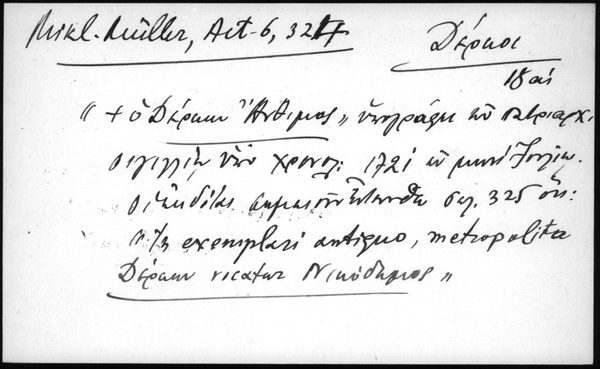 Mikl.-Müller, Act. 6, 324
Δέρκοι
18 αἰ
" + ὁ Δέρκων Ἄνθιμος " ὑπογράφει ἐν πατριαρχ.
σιγιλλίῳ ὑπὸ χρονολ: 1721 ἐν μηνὶ Ἰουλίῳ.
οἱ ἐκδόται σημειοῦν σελ. 325 ὅτι:
" In exemplari antiquo, metropolita
Δέρκων vocatur Νικόδημος "